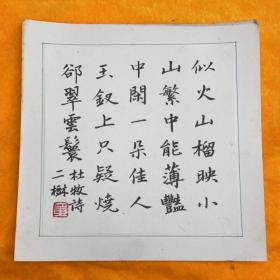 似火山榴映小
山繁中能薄豔
中閑一朵佳人
玉釵上只疑燒
郤翠雲鬟
杜牧詩
二樹